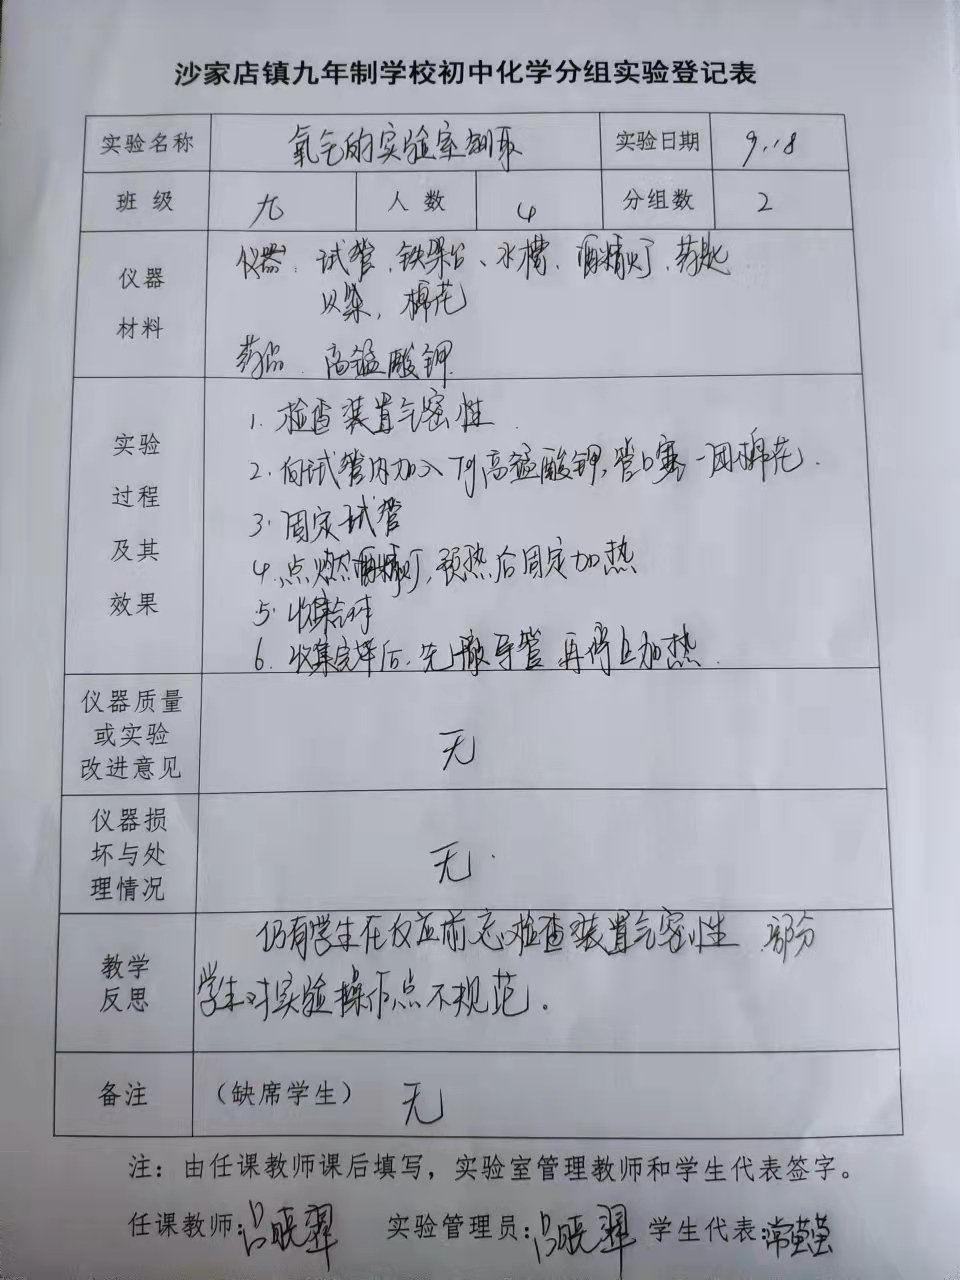 沙家店镇九年制学校初中化学分组实验登记表
实验名称 氧气的实验室制取 实验日期 9.18
班级 九 人数 4 分组数 2
仪器材料
仪器：试管、铁架台、水槽、酒精灯、药匙
棉花
药品：高锰酸钾
实验过程及其效果
1. 检查装置气密性
2. 向试管内加入 高锰酸钾，管口塞一团棉花.
3. 固定试管
4. 点燃酒精灯，预热后固定加热
5. 收集
6. 收集完毕后，先撤导管再停止加热.
仪器质量
或实验
改进意见
无
仪器损
坏与处
理情况
无.
教学
反思
仍有学生在反应前忘检查装置气密性 部分
学生对实验操作点不规范。
备注 （缺席学生） 无
注：由任课教师课后填写，实验室管理教师和学生代表签字。
任课教师:吕晓翠 实验管理员:吕晓翠 学生代表:常莹莹